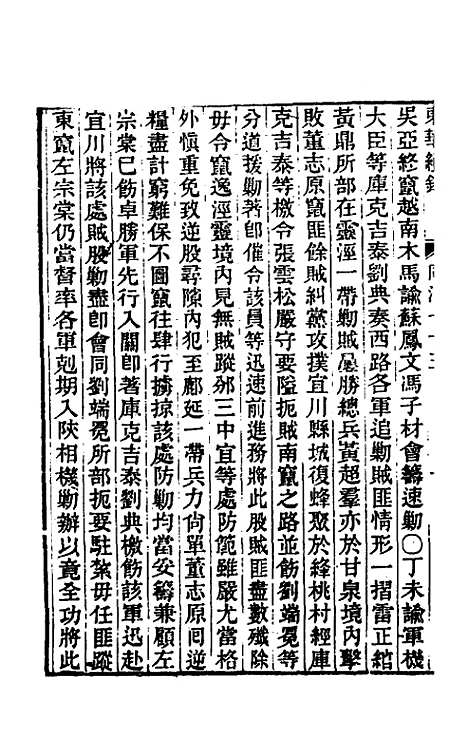 吳亞終竄越南木馬諭蘇鳳文馮子材會籌速勦〇丁未諭軍機
大臣等庫克吉泰劉典奏西路各軍追勦賊匪情形一摺雷正綰
黃鼎所部在靈涇一帶勦賊屢勝總兵黃超羣亦於甘泉境內擊
敗董志原竄匪餘賊糾黨攻撲宜川縣城復蜂聚於絳桃村經庫
克吉泰等檄令張雲松嚴守要隘扼賊南竄之路並飭劉端冕等
分道援勦著卽催令該員等迅速前進務將此股賊匪盡數殲除
毋令竄逸涇靈境內見無賊蹤邠三中宜等處防範雖嚴尤當格
外愼重免致逆股尋隙內犯至鄜延一帶兵力尙單董志原囘逆
糧盡計窮難保不圖竄往肆行擄掠該處防勦均當妥籌兼顧左
宗棠已飭卓勝軍先行入關卽著庫克吉泰劉典檄飭該軍迅赴
宜川將該處賊股勦盡卽會同劉端冕所部扼要駐紮毋任匪蹤
東竄左宗棠仍當督率各軍剋期入陝相機勦辦以竟全功將此